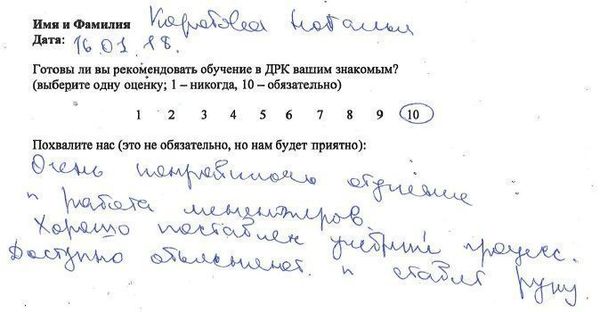 Имя и Фамилия Наталья
Дата: 16.01.18.
Готовы ли вы рекомендовать обучение в ДРК вашим знакомым?
(выберите одну оценку; 1 – никогда, 10 – обязательно)
1 2 3 4 5 6 7 8 9 10
Похвалите нас (это не обязательно, но нам будет приятно):
Очень понравилось отношение
и работа менеджеров.
Хорошо поставлен учебный процесс.
Доступно объясняют и ставят руку.